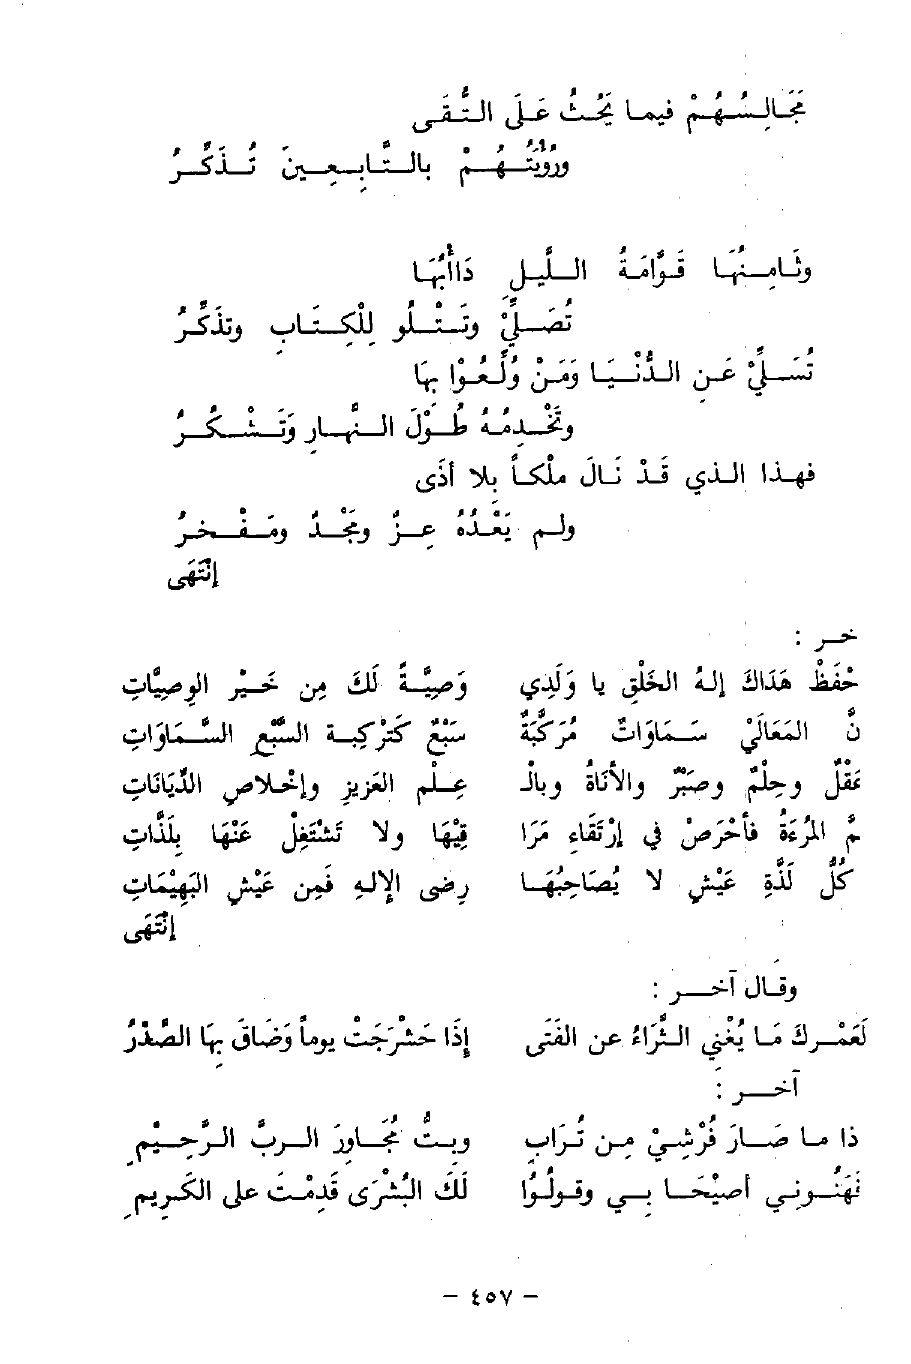 مَجَالِسُهُمْ فيما يَحُثُّ عَلَى التُّقَى
ورُؤْيَتُهُمْ بالتَّابِعِينَ تُذَكِّرُ
وثَامِنُهَا قَوَّامَةُ اللَّيلِ دَاأْبُهَا
تُصَلِّيْ وتَتْلُو لِلْكِتَابِ وتذَكِّرُ
تُسَلِّيْ عَنِ الدُّنْيَا وَمَنْ وُلِّعُوْا بِهَا
وتَخْدِمُهُ طُوْلَ النَّهارِ وَتَشْكُرُ
فهذا الذي قَدْ نَالَ ملْكاً بِلا أذَى
ولم يَعْدُهُ عِزٌّ ومَجْدٌ ومَفْخَرُ
إنْتَهَى
خر :
حْفَظْ هَدَاكَ إلهُ الخَلْقِ يا وَلَدِي وَصِيَّةً لَكَ مِن خَيْرِ الوصِيَّاتِ
نَّ المَعَالَيْ سَمَاوَاتٌ مُرَكَّبَةٌ سَبْعٌ كَتَرْكِيبةِ السَّبْعِ السَّمَاوَاتِ
عَقْلٌ وحِلْمٌ وصَبْرٌ والأنَاةُ وبالـ عِلْمِ العَزِيزِ وإخْلاصِ الدِّيَانَاتِ
مُ المُرءَةُ فأحْرَصْ في إرْتِقَاءِ مَرَا قِيْهَا ولا تَشْتَغِلْ عَنْهَا بِلَذَّاتِ
كُلُّ لَذَّةِ عَيْشٍ لا يُصَاحِبُهَا رِضى الإلهِ فَمِن عَيْشِ البَهِيْمَاتِ
إنْتَهَى
وقَال آخر :
لَعَمْرِكَ مَا يُغْنِي الثَّرَاءُ عن الفَتَى إذَا حَشْرَجَتْ يوماً وَضَاقَ بِهَا الصَّدْرُ
آخر :
ذا ما صَارَ فُرْشِيْ مِن تُرَابِ وبتُّ مُجَاورَ الربِّ الرَّحِيْمِ
نَهنُونِي أصيْحَابي وقولُوْا لَكَ البُشْرَى قَدِمْتَ على الكَرِيمِ
– ٤٥٧ –